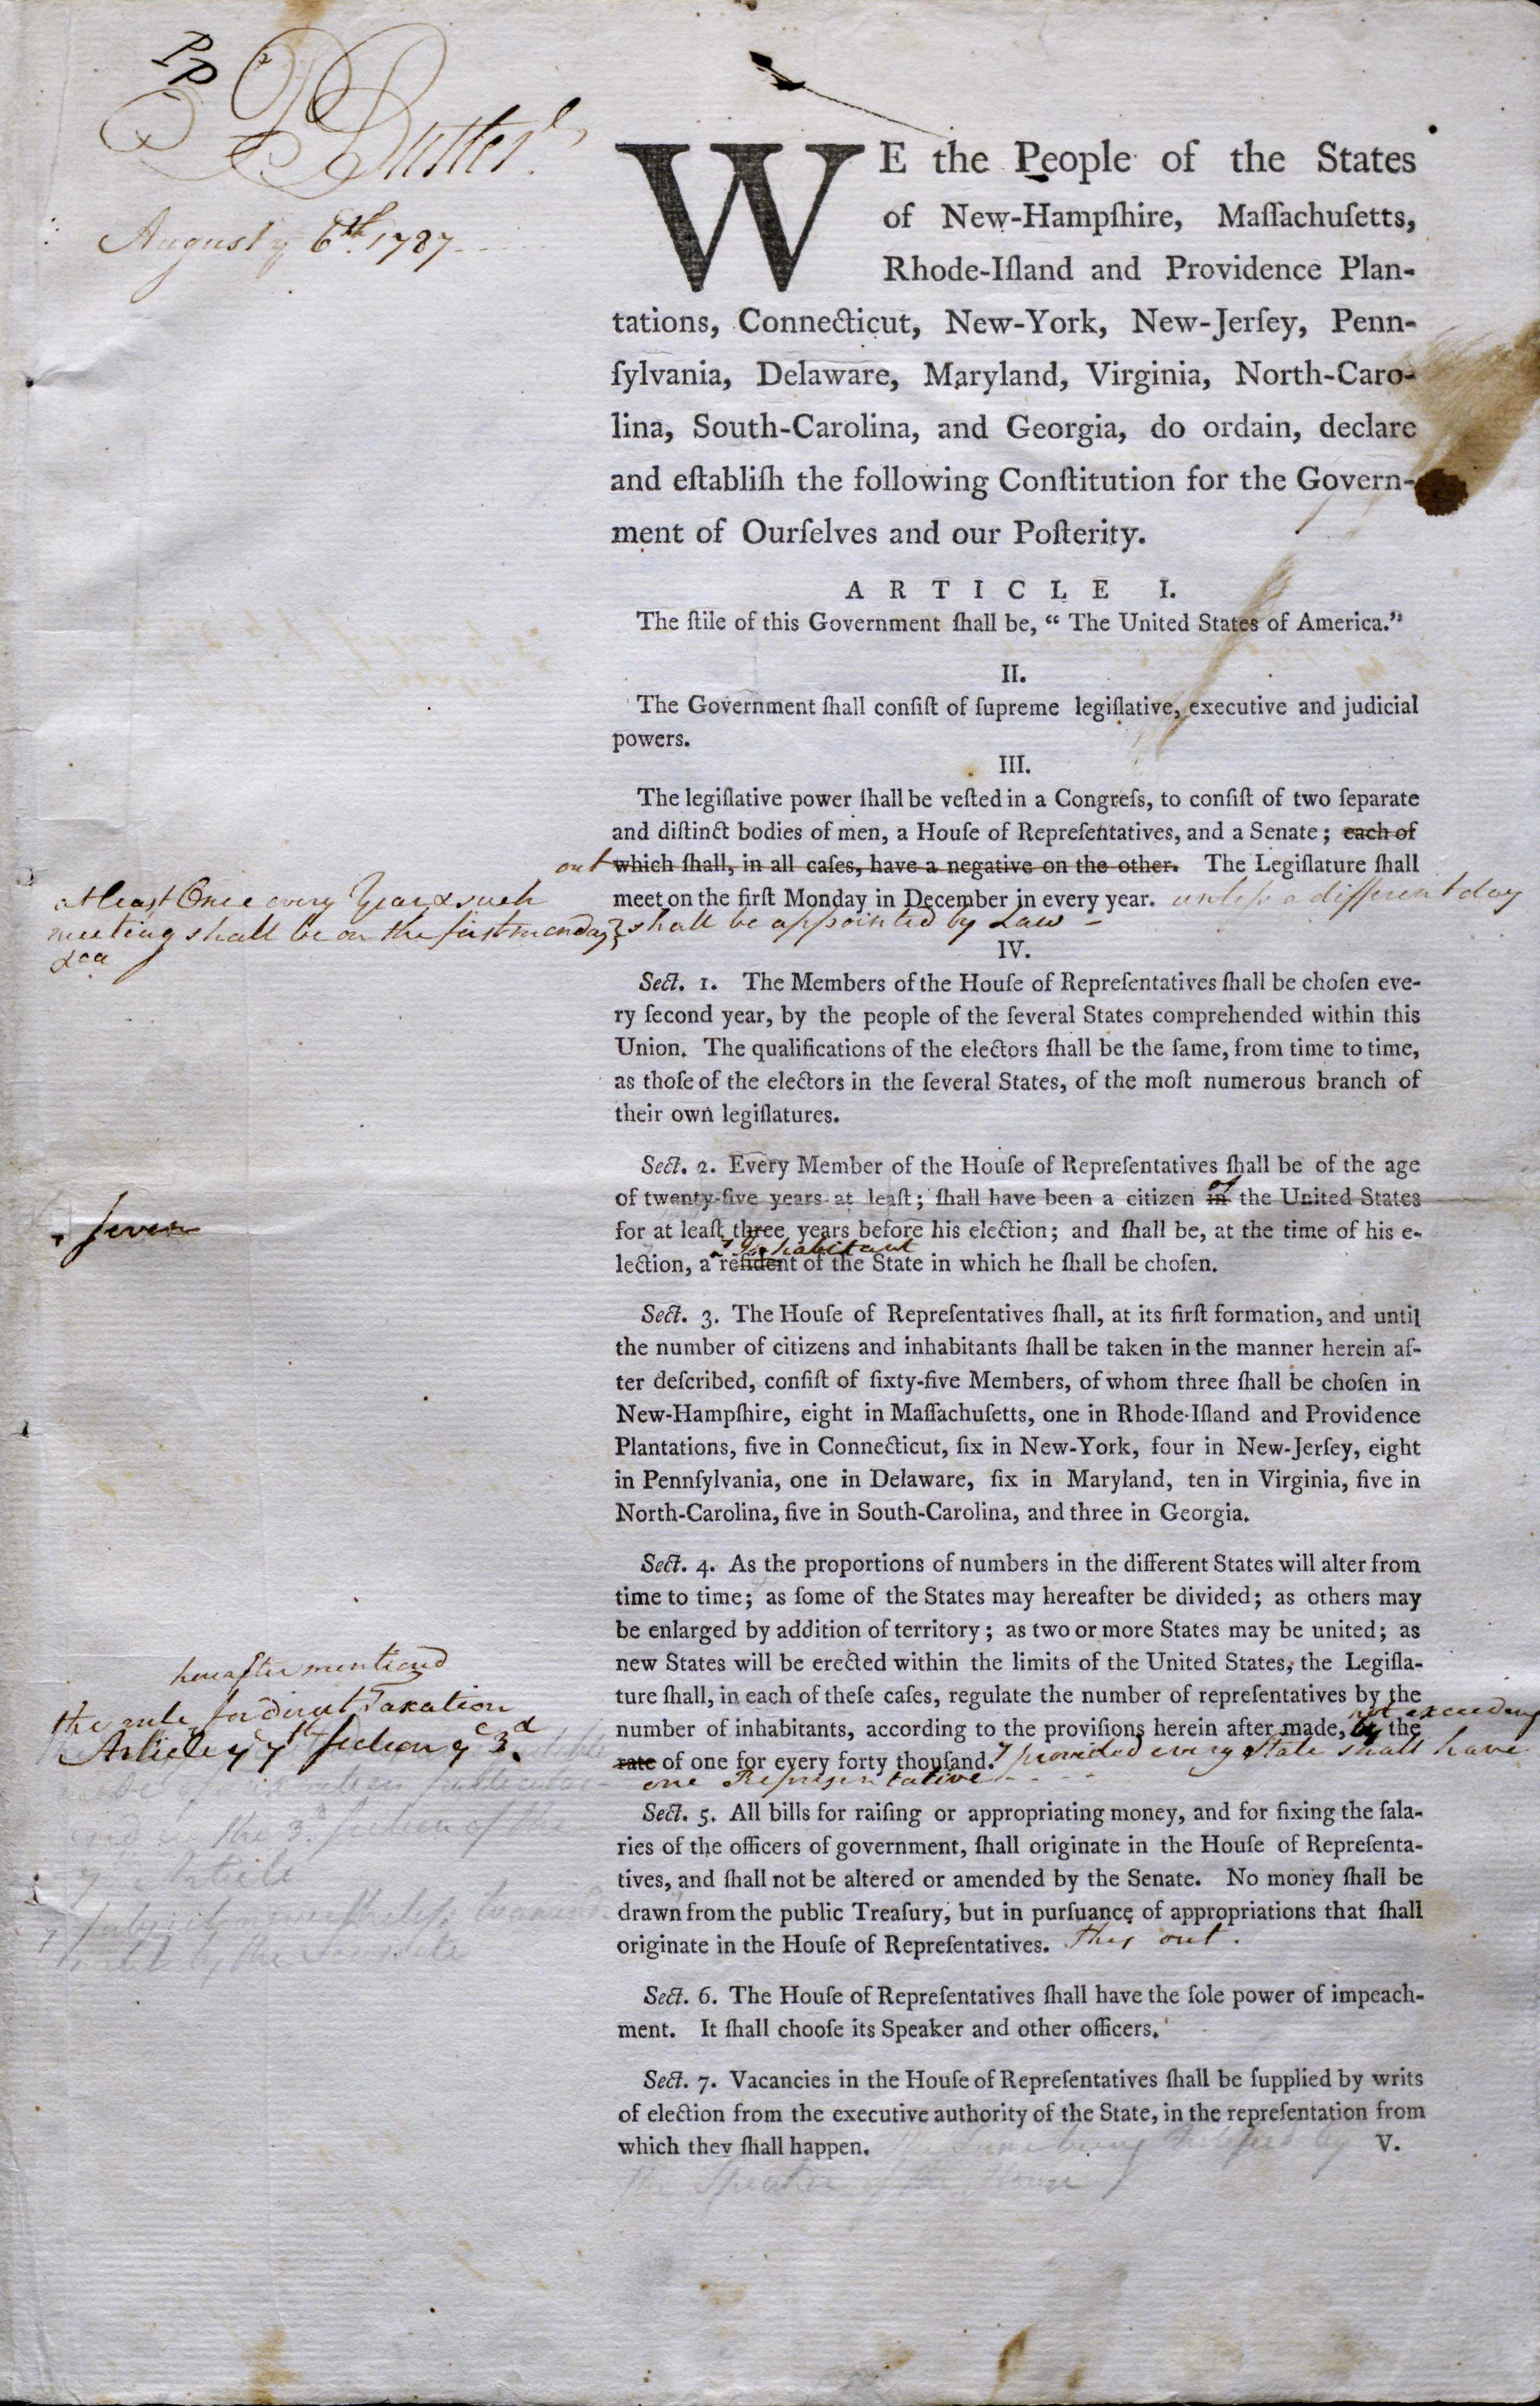 PP
P Butler
August ye 6th. 1787
WE the People of the States
of New-Hampſhire, Maſſachuſetts,
Rhode-Iſland and Providence Plan-
tations, Connecticut, New-York, New-Jerſey, Penn-
ſylvania, Delaware, Maryland, Virginia, North-Caro-
lina, South-Carolina, and Georgia, do ordain, declare
and eſtabliſh the following Conſtitution for the Govern-
ment of Ourſelves and our Poſterity.
ARTICLE I.
The ſtile of this Government ſhall be, “ The United States of America.”
II.
The Government ſhall conſiſt of ſupreme legiſlative, executive and judicial
powers.
III.
The legiſlative power ſhall be veſted in a Congreſs, to conſiſt of two ſeparate
and diſtinct bodies of men, a Houſe of Repreſentatives, and a Senate; each of
out which ſhall, in all caſes, have a negative on the other. The Legiſlature ſhall
meet on the firſt Monday in December in every year. unleſs a different day
shall be appointed by Law -
at least Once every Year & such
meeting shall be on the first monday
&ca
IV.
Sect. 1. The Members of the Houſe of Repreſentatives ſhall be choſen eve-
ry ſecond year, by the people of the ſeveral States comprehended within this
Union. The qualifications of the electors ſhall be the ſame, from time to time,
as thoſe of the electors in the ſeveral States, of the moſt numerous branch of
their own legiſlatures.
Sect. 2. Every Member of the Houſe of Repreſentatives ſhall be of the age
of
of twenty-five years at leaſt; ſhall have been a citizen in the United States
seven
for at leaſt three years before his election; and ſhall be, at the time of his e-
Inhabitant
lection, a reſident of the State in which he ſhall be choſen.
Sect. 3. The Houſe of Repreſentatives ſhall, at its firſt formation, and until
the number of citizens and inhabitants ſhall be taken in the manner herein af-
ter deſcribed, conſiſt of ſixty-five Members, of whom three ſhall be choſen in
New-Hampſhire, eight in Maſſachuſetts, one in Rhode-Iſland and Providence
Plantations, five in Connecticut, ſix in New-York, four in New-Jerſey, eight
in Pennſylvania, one in Delaware, ſix in Maryland, ten in Virginia, five in
North-Carolina, five in South-Carolina, and three in Georgia.
Sect. 4. As the proportions of numbers in the different States will alter from
time to time; as ſome of the States may hereafter be divided; as others may
be enlarged by addition of territory; as two or more States may be united; as
new States will be erected within the limits of the United States, the Legiſla-
ture ſhall, in each of theſe caſes, regulate the number of repreſentatives by the
not exceeding
number of inhabitants, according to the proviſions herein after made, at the
rate of one for every forty thouſand. provided every State shall have
one Representative
hereafter mentiond
the rule for direct Taxation
Article ye 7th section ye 3d
Sect. 5. All bills for raiſing or appropriating money, and for fixing the ſala-
ries of the officers of government, ſhall originate in the Houſe of Repreſenta-
tives, and ſhall not be altered or amended by the Senate. No money ſhall be
drawn from the public Treaſury, but in purſuance of appropriations that ſhall
originate in the Houſe of Repreſentatives. this out.
and in the 3d. section of the
7 Article
by the Senate
Sect. 6. The Houſe of Repreſentatives ſhall have the ſole power of impeach-
ment. It ſhall chooſe its Speaker and other officers.
Sect. 7. Vacancies in the Houſe of Repreſentatives ſhall be ſupplied by writs
of election from the executive authority of the State, in the repreſentation from
which they ſhall happen.
the Speaker of the House
V.